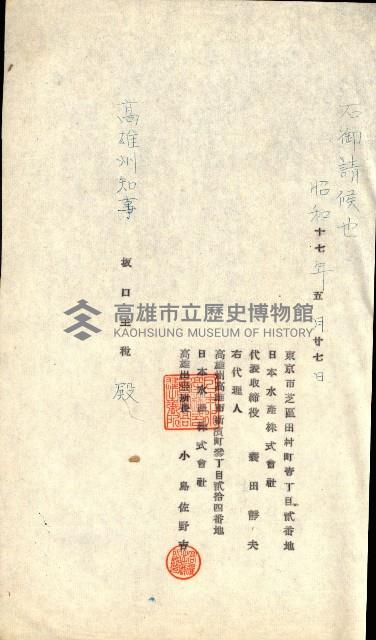 右御請候也
昭和十七年五月廿七日
東京市芝區田村町壹丁目貳番地
日本水產株式會社
代表取締役
田靜夫
右代理人
高雄州高雄市新濱町壹丁目貳拾四番地
日本水產株式會社
高雄出張所長
小島佐野吉
高雄州知事
坂口主稅 殿
高雄市立歷史博物館
KAOHSIUNG MUSEUM OF HISTORY